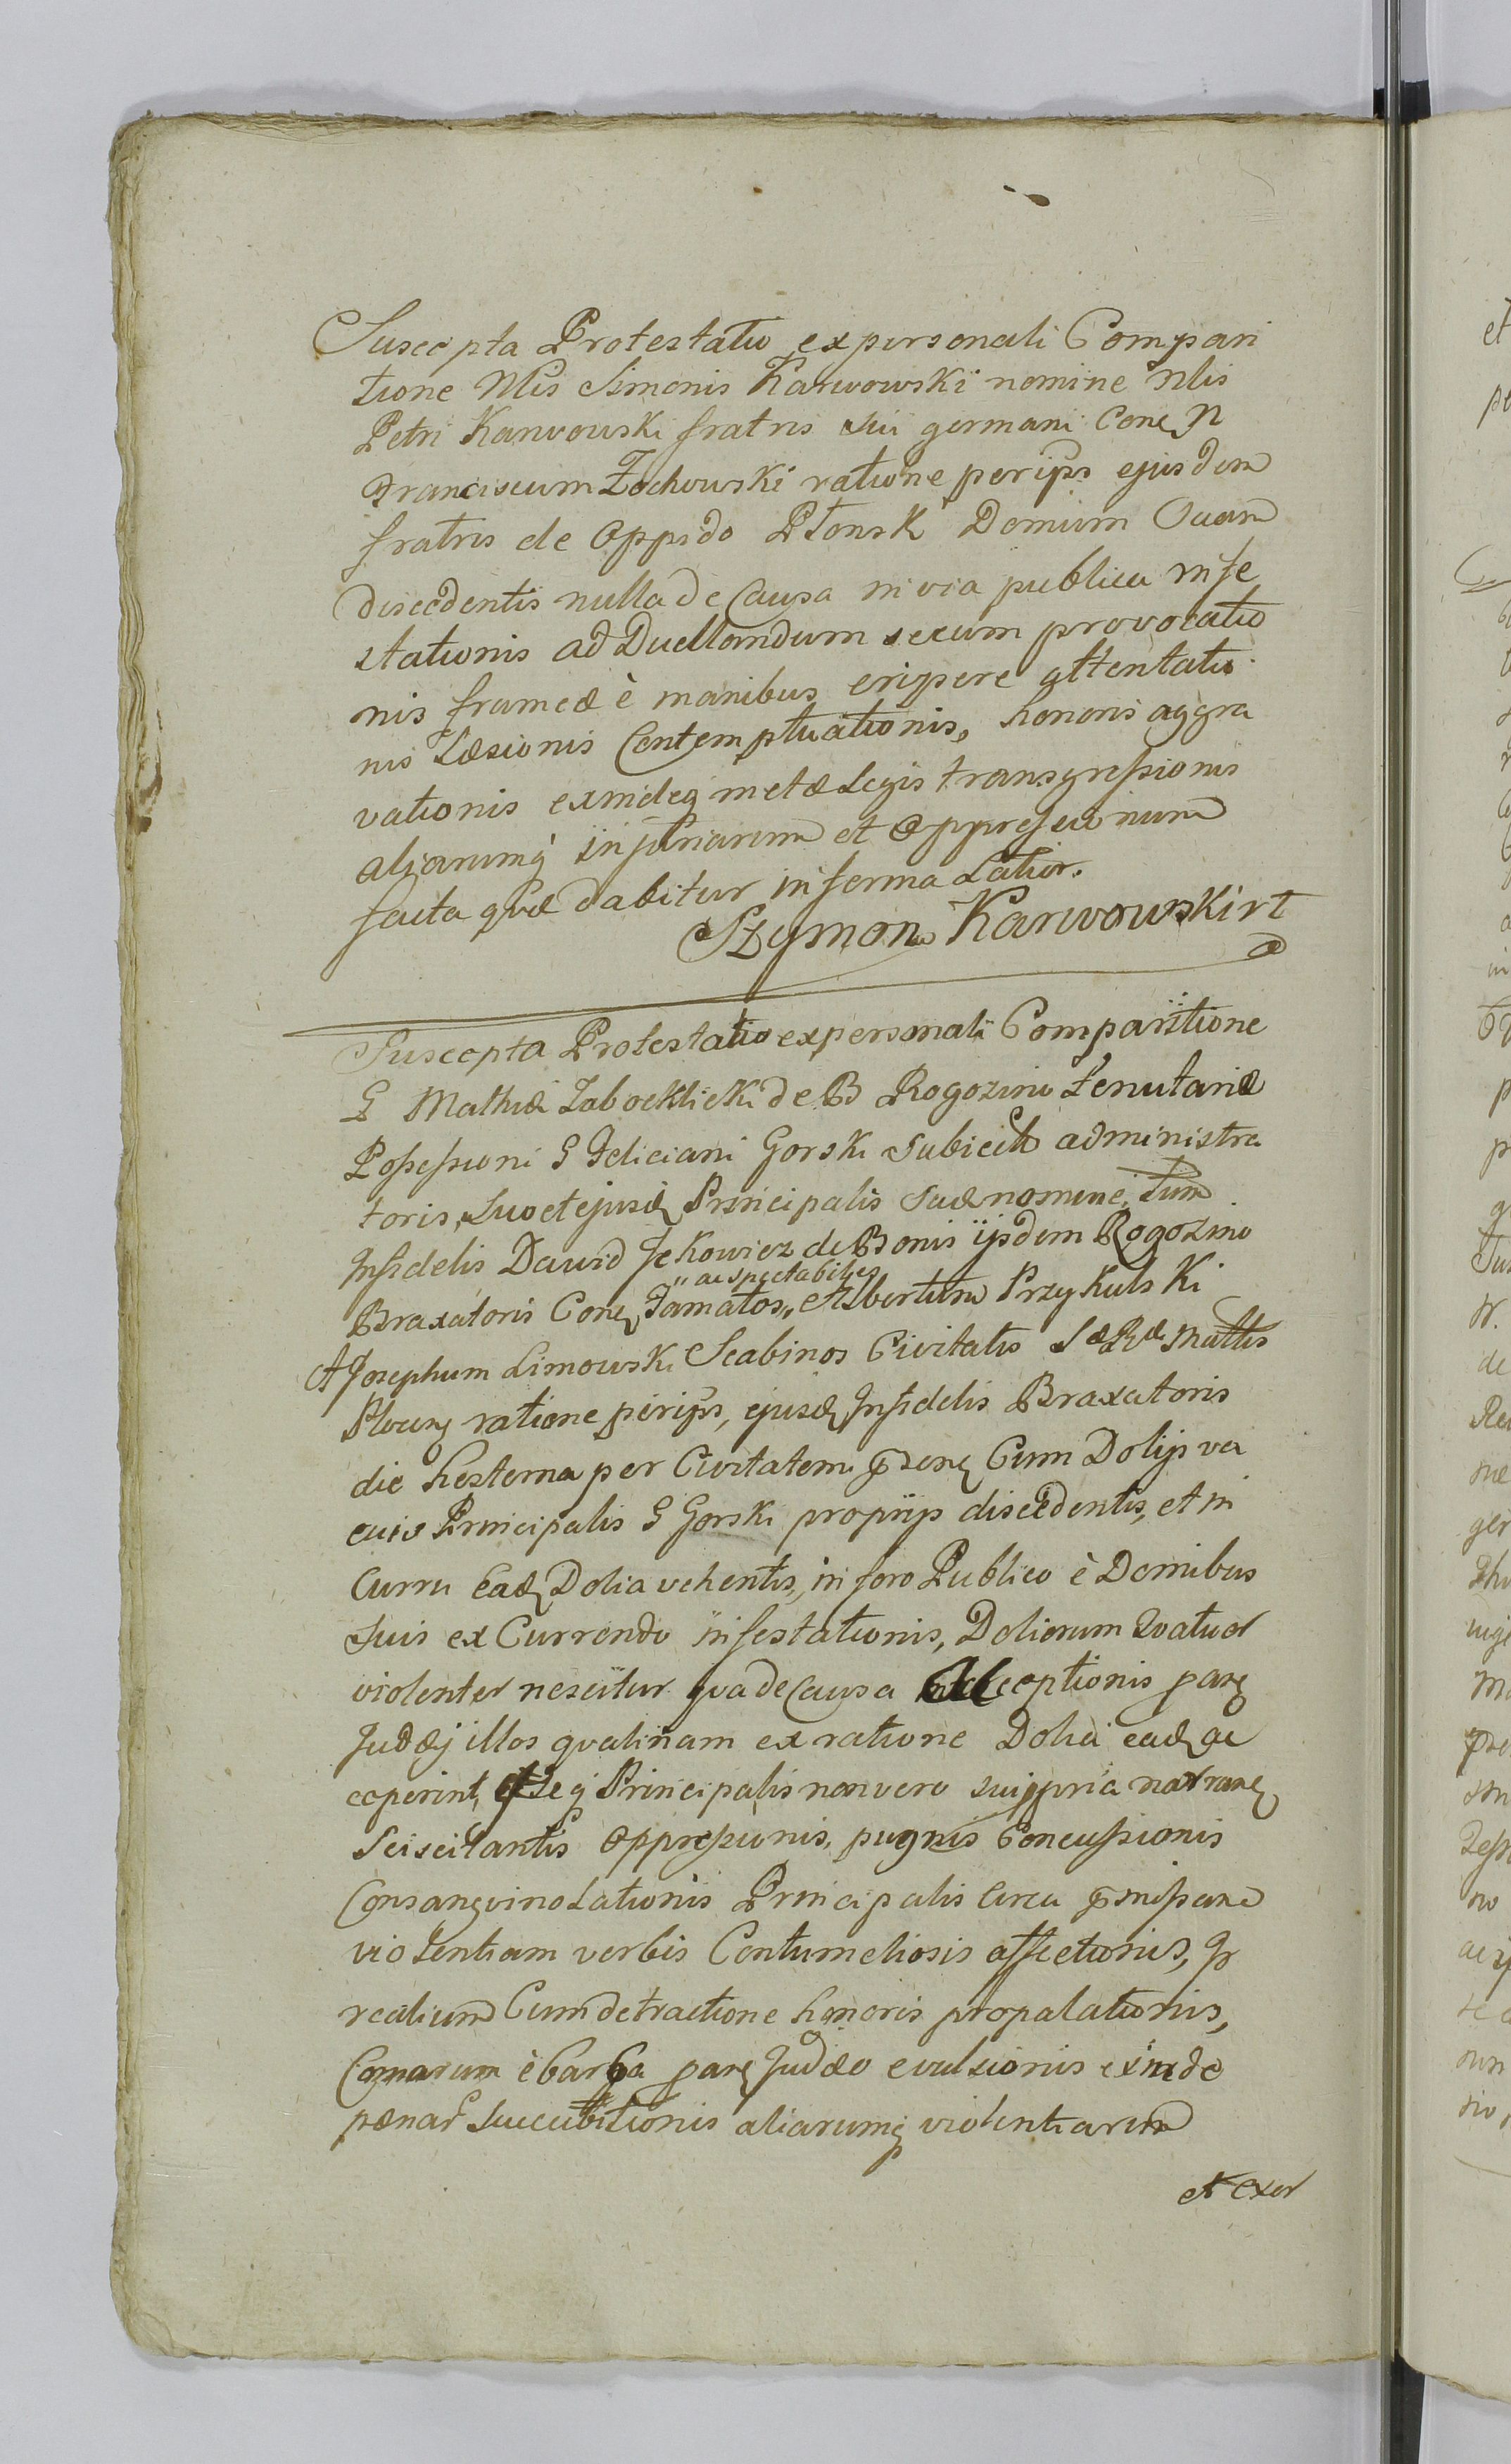 Suscepta Protestatio ex personali Compari
tione Nlis Simonis Karwowski nomine Nlis
Petri Karwowski fratris sui germani Conq N
Franciscum Żochowski ratione peripps ejusdem
fratris de Oppido Płonsk Domum Suam
discedentis nulla de Causa in via publica infe
stationis ad Duellandum secum provocatio
nis frameæ è manibus eripere attentatio
nis Læsionis Contemptuationis, honoris aggra
vationis exindeq metæ Legis transgressionis
aliarumq injuriarum et Oppressionum
facta quæ dabitur in forma Latior.
Szymon Karwowski rt
Suscepta Protestatio ex personali Comparitione
G Mathiæ Zabocklicki de B Rogozino Tenutariæ
Possessioni G Feliciani Gorski Subiect administra
toris, suo et ejusd Principalis Sui nomine, tum
Infidelis Dawid Jckowicz de Bonis iisdem Rogozino
Braxatoris Conq Famatos, ac spectabiles Albertum Przykulski
A Josephum Limowski Scabinos Civitatis SæRæ Mattis
Plocen ratione peripps, ejusd Infidelis Braxatoris
die hesterna per Civitatem pdenq Cum Dolijs va
cuis Principalis G Gorski proprijs discedentis, et in
Curru Ead Dolia vehentis, in foro Publico è Domibus
suis ex Currendo infestationis, Doliorum Quatuor
violenter nescitur qua de Causa acceptionis parq
Judæj illos qualinam ex ratione Dolia ead ac
ceperint, Principalis non vero sui ppria narranq
Sciscitantis Oppressionis, pugnis Concussionis
Consangvinolationis Principalis Circa
violentiam verbis Contumeliosis affectionis,
realium Cum detractione honoris propalationis,
Comarum è barba parq Judæo evulsionis exinde
pænar Succubitionis aliarumq violentiarum
et Exor